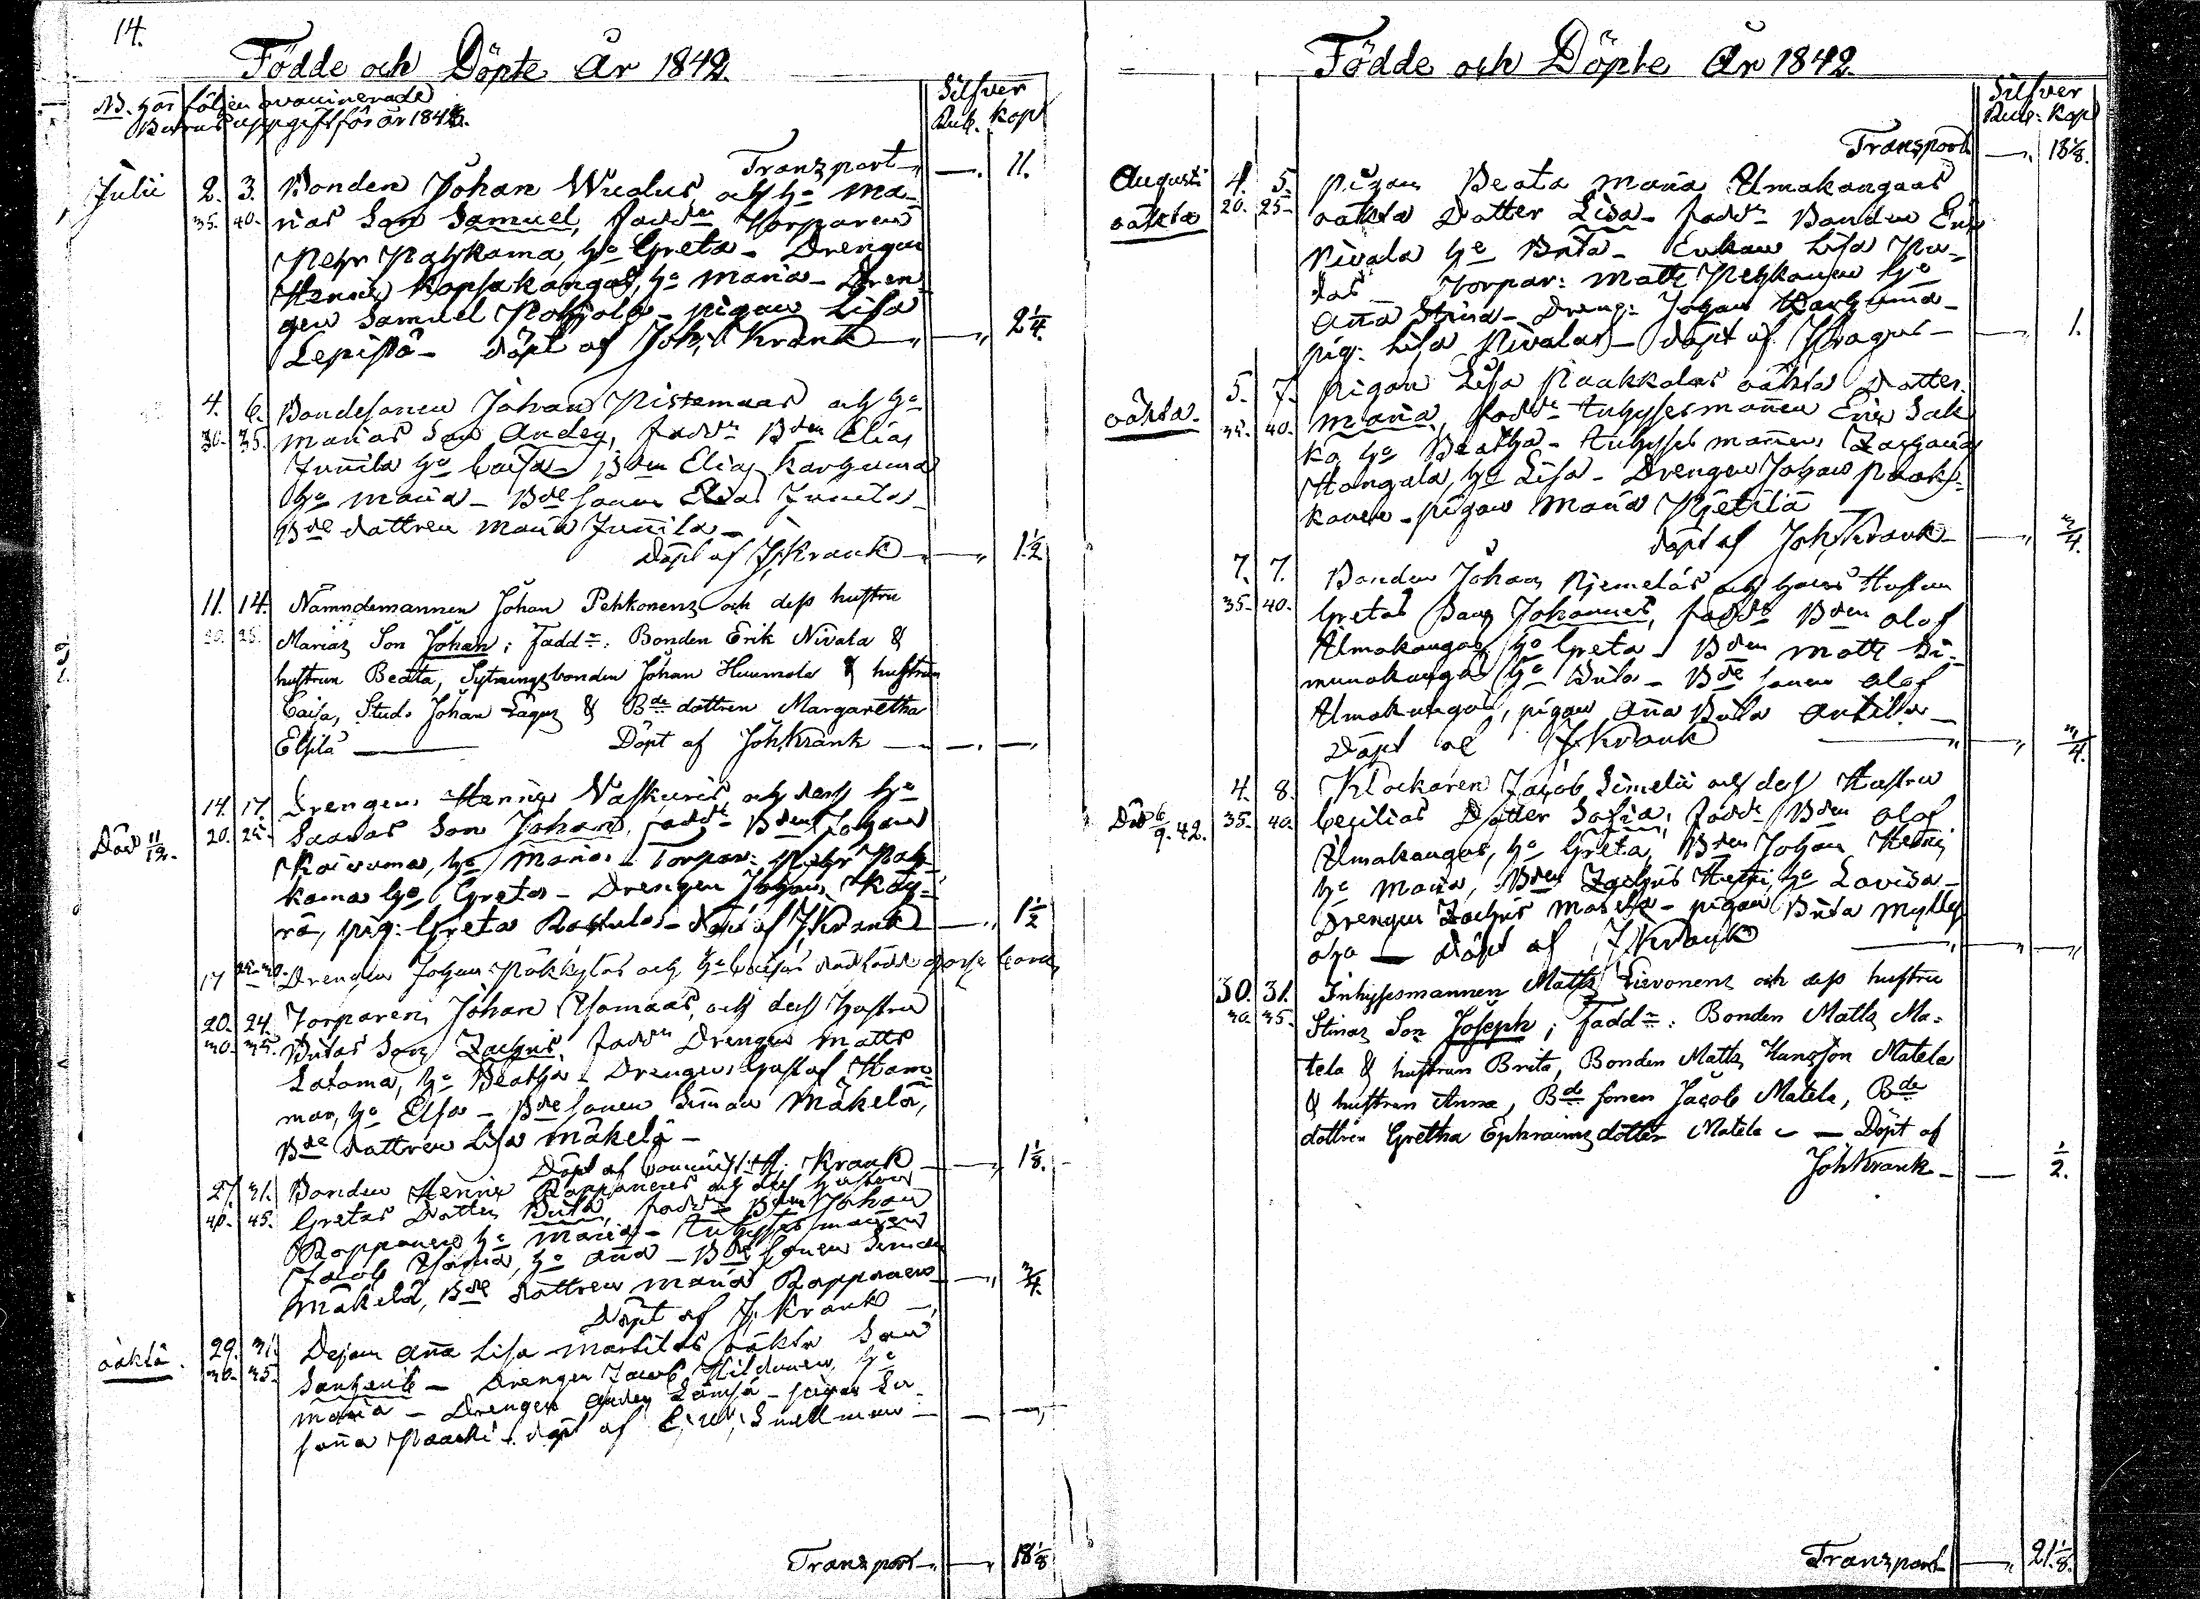 14.
Födde och Döpte År 1842.
NB. här följen ovaccinerade
Barnas uppgift för år 1842.
Silfver
Rub. kop
Transport — 11.
Julii 2. 3. Bonden Johan Wualus och ho Ma-
35. 40. rias Son Samuel, fadd Torparen
Pehr Pahkama, ho Greta - Drengen
Henric Kopsakangas, ho Maria - Dren-
gen Samuel Pohjola - pigan Lisa
Lepistö - döpt af Joh. Krank — 2 1/4.
4. 6. Bondesonen Johan Pistemaas och ho
30. 35. Marias Son Anders, fadd Bden Elias
Junnila ho Caisa - Bden Elias Karhumaa
ho Maria - Bde sonen Elias Junnila
Bde dottren Maria Junnila -
Döpt af J. Krank — 1 1/2
11. 14. Nämndemannen Johan Pehkonens och dess hustru
20. 25. Marias Son Johan; Fadd: Bonden Erik Nivala &
hustrun Beata, Sytningsbonden Johan Huumola & hustrun
Caisa, Stud. Johan Lagus & Bde dottren Margaretha
Elfilä — Döpt af Joh Krank — —
14. 17. Drengen Henric Naskuris och dess ho
Död 11/12. 20. 25. Saaras Son Johan, fadd Bden Johan
Kaivuma, ho Maria - Torpar: Pehr Pah-
kama ho Greta - Drengen Johan Köy-
rä, pig: Greta Rautula - döpt af J Krank — 1 1/2
17 Drengen Johan ho Caisas dödfödde
20. 24. Torparen Johan Ylomaas, och dess hustru
30. 35. Britas Son Zachris, fadd Drengen Matts
Latoma, ho Beatha - Drengen Gustaf Ham-
mar, ho Elsa - Bde sonen Simon Mäkelä,
Bde dottren Lisa Mäkelä -
Döpt af Krank — 1 1/8.
27 31. Bonden Henric Rapponens och dess hustru
40. 45. Gretas Dotter Brita, fadd Bden Johan
Rapponen ho Maria - Inhyssesmannen
Jacob ho Anna - Bde Sonen Simon
Mäkelä, Bde dottren Maria Rapponen — 3/4.
Döpt af J. Krank —
oäkta. 29. 31. Dejan Anna Lisa Marttilas oäkta Son
30. 35. - Drengen Jacob Hildunen, ho
Maria - Drengen Anders Lämsä - pigan Su-
sanna döpt af Snellman — —
Transport — 18 1/8
Födde och Döpte År 1842.
Silfver
Rub: Kop
Transport — 18 1/8.
Augusti 4. 5. pigan Beata Maria Ulmakangaas
oäkta 20. 25 oäkta Dotter Lisa - fadd Bonden Eric
Nivala ho Brita - Enkan Lisa
Torpar: Matts Pehkonen ho
Anna Stina - Dreng: Johan Karhumaa -
pig: Lisa Nivalas - döpt af — 1.
5. 7. pigan Lisa Paakkolas oäkta Dotter
oäkta. 35. 40. Maria, fadd Inhyssesmannen Eric Sak-
ko, ho Beatha - Inhyssesmannen Zachris
Hangala, ho Lisa - Drengen Johan Paak-
konen - pigan Maria Pietilä
döpt af Joh Krank — 3/4.
7. 7. Bonden Johan Njemeläs och hans Hustru
35. 40. Gretas Son Johannes, fadd Bden Olof
Ulmakangas ho Greta - Bden Matts Si-
munakangas ho Brita - Bde sonen Olof
Ulmakangas, pigan Anna Brita Anttila -
Döpt af J Krank — 3/4.
4. 8. Klockaren Jacob Simelii och dess Hustru
Död 6/9. 42. 35. 40. Cecilias Dotter Sofia, fadd Bden Olof
Ulmakangas, ho Greta, Bden Johan Hetni
ho Maria, Bden Zachris ho Lovisa -
Drengen Zachris Matela - pigan Brita Mylly-
oja — döpt af J Krank — —
30. 31. Inhyssesmannen Matts Lievonens och dess hustru
30. 35. Stinas Son Joseph; Fadd: Bonden Matts Ma-
tela & hustrun Brita, Bonden Matts Hansson Matela
& hustrun Anna, Bde sonen Jacob Matela, Bde
dottren Gretha Ephraimsdotter Matela — Döpt af
Joh Krank — 1/2.
Transport — 21 1/8.